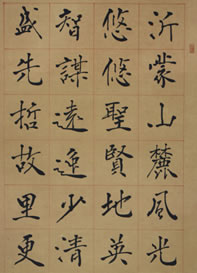 沂蒙山麓風光
悠悠聖賢地英
智謀遠逸少清
盛先哲故里更